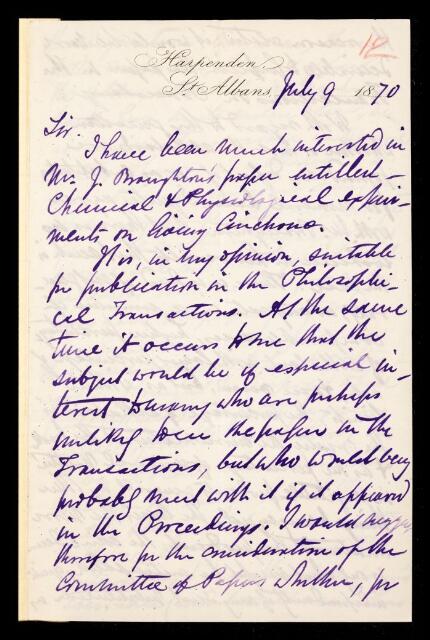 12
Harpenden.
St. Albans, July 9 1870
Sir.
I have been much interested in
Mr. J. Broughton's paper entitled –
Chemical & Physiological experi-
ments on living Cinchonæ.
It is, in my opinion, suitable
for publication in the Philosophi-
cal Transactions. At the same
time it occurs to me that the
subject would be of especial in-
terest to many who are perhaps
unlikely to see the paper in the
Transactions, but who would very
probably meet with it if it appeared
in the Proceedings. I would suggest
therefore for the consideration of the
Committee of Papers whether, for